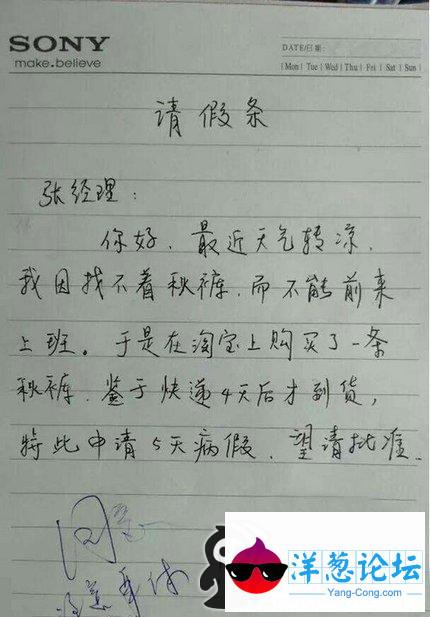 SONY
make.believe
DATE/日期:
Mon | Tue | Wed | Thu | Fri | Sat | Sun |
请假条
张经理:
你好,最近天气转凉,
我因找不着秋裤,而不能前来
上班。于是在淘宝上购买了一条
秋裤,鉴于快递4天后才到货,
特此申请5天病假,望请批准.
同意
注意身体
洋葱论坛
Yang-Cong.com